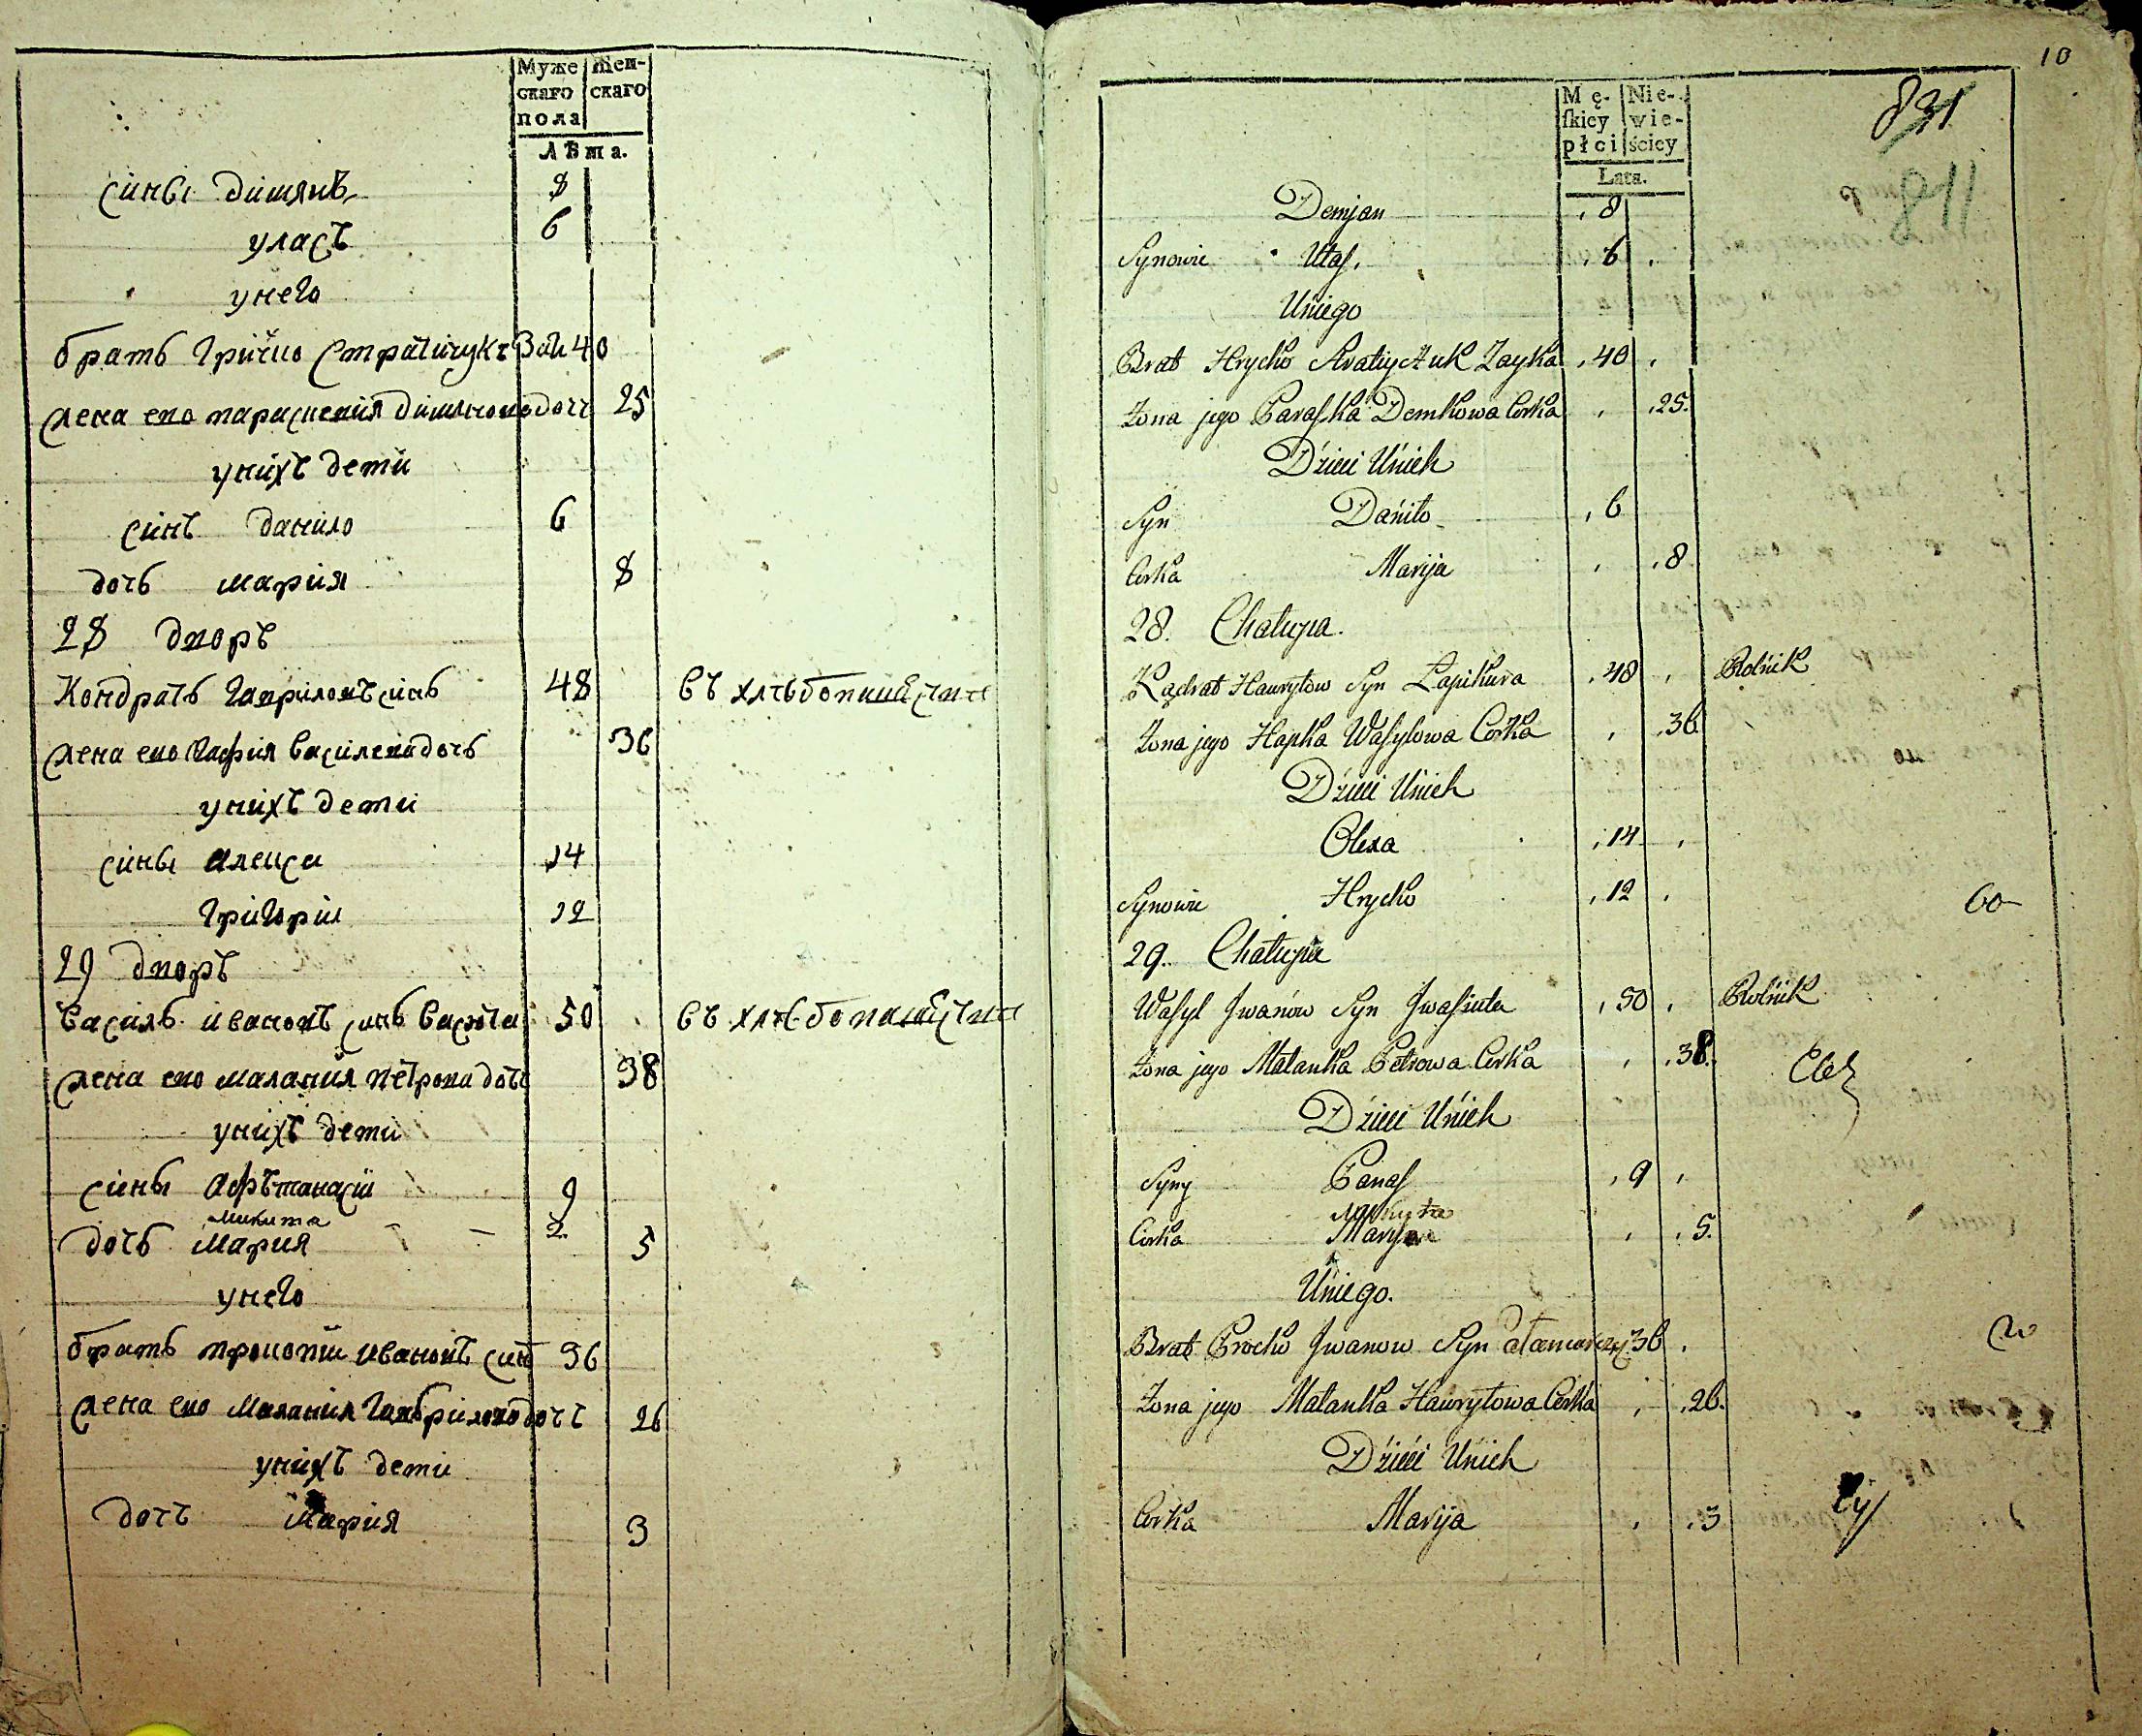 Муже Жен-
скаго скаго
пола
Лѣта.
сины димянъ 8
уласъ 6
унего
братъ гричко 40
жена его 25
унихъ дети
синъ данило 6
дочь мария 8
28 дворъ
Кондратъ гавриловъ синъ 48
жена его дочь 36
унихъ дети
сины алекса 14
григорiи 12
29 дворъ
василь ивановъ синъ 50
жена его малания петрова дочь 38
унихъ дети
сины 9
микита 2
дочь мария 5
унего
братъ прокопiи ивановъ синъ 36
жена его малания дочь 26
унихъ дети
дочъ мария 3
10
Mę- Nie-
ſkiey wie-
płci ściey
Lata.
831
811
Demjan 8
Synowie Ułaſ. 6
Uniego
Brat Hrycko Zayka 40
Żona jego Paraſka Demkowa Corka 25.
Dzieci Unich
Syn Daniło 6
Corka Marija 8
28. Chałupa.
Kądrat Hawryłow Syn Łapikura 48 Rolnik
Żona jego Hapka Waſylowa Corka 36
Dzieci Unich
Olexa 14
Synowie Hrycko 12
29. Chałupa
Waſyl Jwanow Syn Jwaſiuta 50 Rolnik
Żona jego Małanka Petrowa Corka 38.
Dzieci Unich
Syny Panaſ 9
Mikyta
Corka Marya 5.
Uniego.
Brat Procko Jwanow Syn 36
Żona jego Małanka Hawryłowa Corka 26.
Dzieci Unich
Corka Marija 3